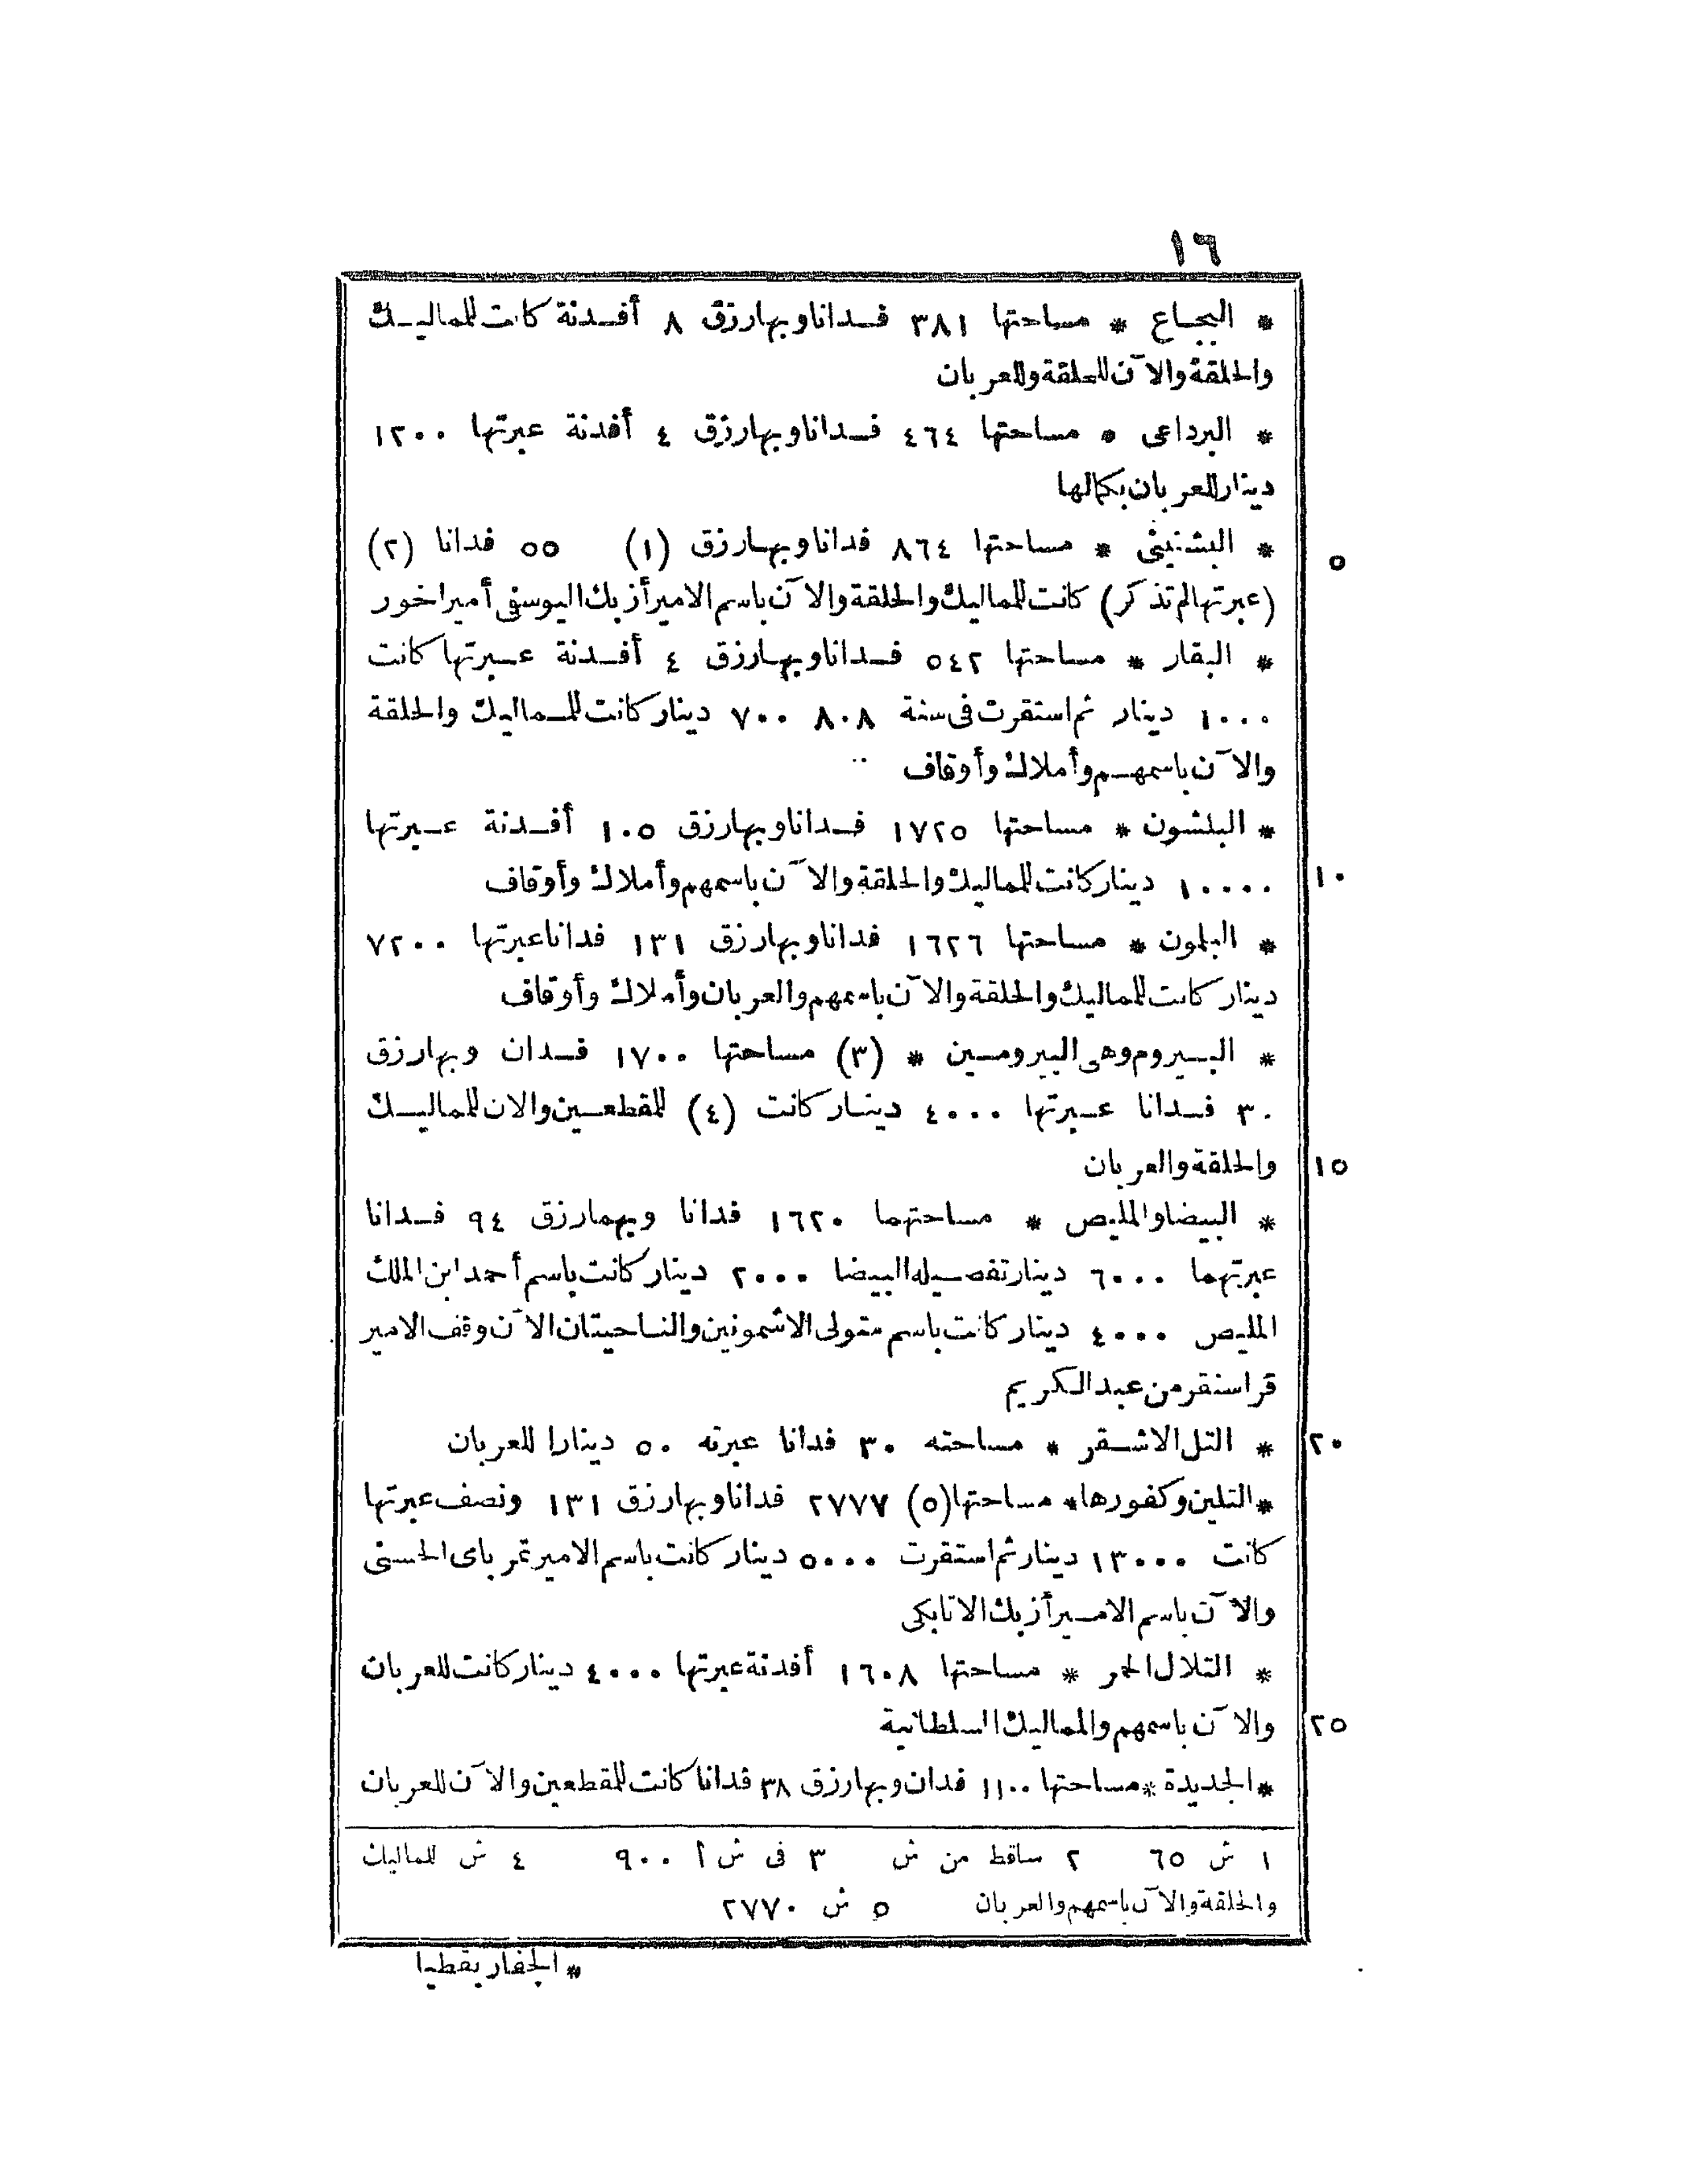 ١٦
* البجاع * مساحتها ٣٨١ فدانا وبها رزق ٨ أفدنة كانت للماليك
والحلقة والآن للحلقة وللعربان
* البرداعى * مساحتها ٤٦٤ فدانا وبها رزق ٤ أفدنة عبرتها ١٢٠٠
دينار للعربان بكمالها
٥ * البشنينى * مساحتها ٨٦٤ فدانا وبها رزق (١) ٥٥ فدانا (٢)
(عبرتها لم تذكر) كانت للماليك والحلقة والآن باسم الامير أزبك اليوسفى أميراخور
* البقار * مساحتها ٥٤٢ فدانا وبها رزق ٤ أفدنة عبرتها كانت
١٠٠٠ دينار ثم استقرت فى سنة ٨٠٨ ٧٠٠ دينار كانت للماليك والحلقة
والآن باسمهم وأملاك وأوقاف
* البلشون * مساحتها ١٧٢٥ فدانا وبها رزق ١٠٥ أفدنة عبرتها
١٠ ١٠٠٠٠ دينار كانت للماليك والحلقة والآن باسمهم وأملاك وأوقاف
* البلمون * مساحتها ١٦٢٦ فدانا وبها رزق ١٣١ فدانا عبرتها ٧٢٠٠
دينار كانت للماليك والحلقة والآن باسمهم والعربان وأملاك وأوقاف
* البيروم وهى البيرومين * (٣) مساحتها ١٧٠٠ فدان وبها رزق
٣٠ فدانا عبرتها ٤٠٠٠ دينار كانت (٤) للمقطعين والان للماليك
١٥ والحلقة والعربان
* البيضا والمليص * مساحتهما ١٦٢٠ فدانا وبهما رزق ٩٤ فدانا
عبرتهما ٦٠٠٠ دينار تفصيله البيضا ٢٠٠٠ دينار كانت باسم أحمد ابن الملك
المليص ٤٠٠٠ دينار كانت باسم متولى الاشمونين والناحيتان الآن وقف الامير
قراسنقر من عبد الكريم
٢٠ * التل الاشقر * مساحته ٣٠ فدانا عبرته ٥٠ دينارا للعربان
* التلين وكفورها * مساحتها (٥) ٢٧٧٧ فدانا وبها رزق ١٣١ ونصف عبرتها
كانت ١٣٠٠٠ دينار ثم استقرت ٥٠٠٠ دينار كانت باسم الامير تمرباى الحسنى
والآن باسم الامير أزبك الاتابكى
* التلال الحمر * مساحتها ١٦٠٨ أفدنة عبرتها ٤٠٠٠ دينار كانت للعربان
٢٥ والآن باسمهم والمماليك السلطانية
* الجديدة * مساحتها ١١٠٠ فدان وبها رزق ٣٨ فدانا كانت للمقطعين والآن للعربان
١ ش ٦٥ ٢ ساقط من ش ٣ فى ش أ ٩٠٠ ٤ ش للماليك
والحلقة والآن باسمهم والعربان ٥ ش ٢٧٧٠
* الجفار بقطيا